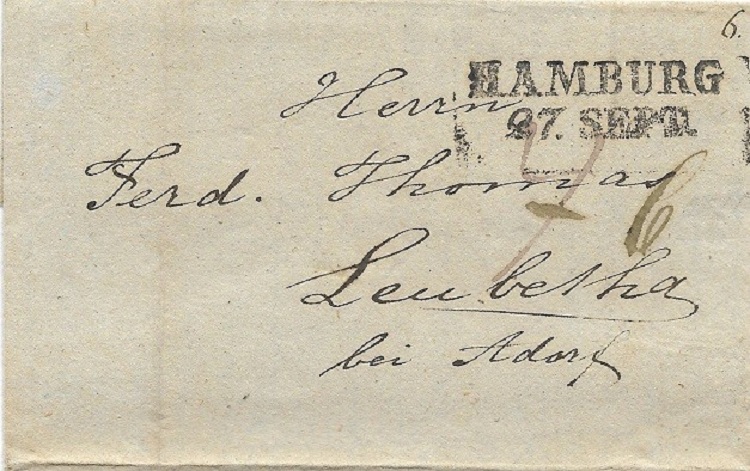 6.
HAMBURG
27. SEPT.
Herrn
Ferd. Thomas
6
Leubetha
bei Adorf